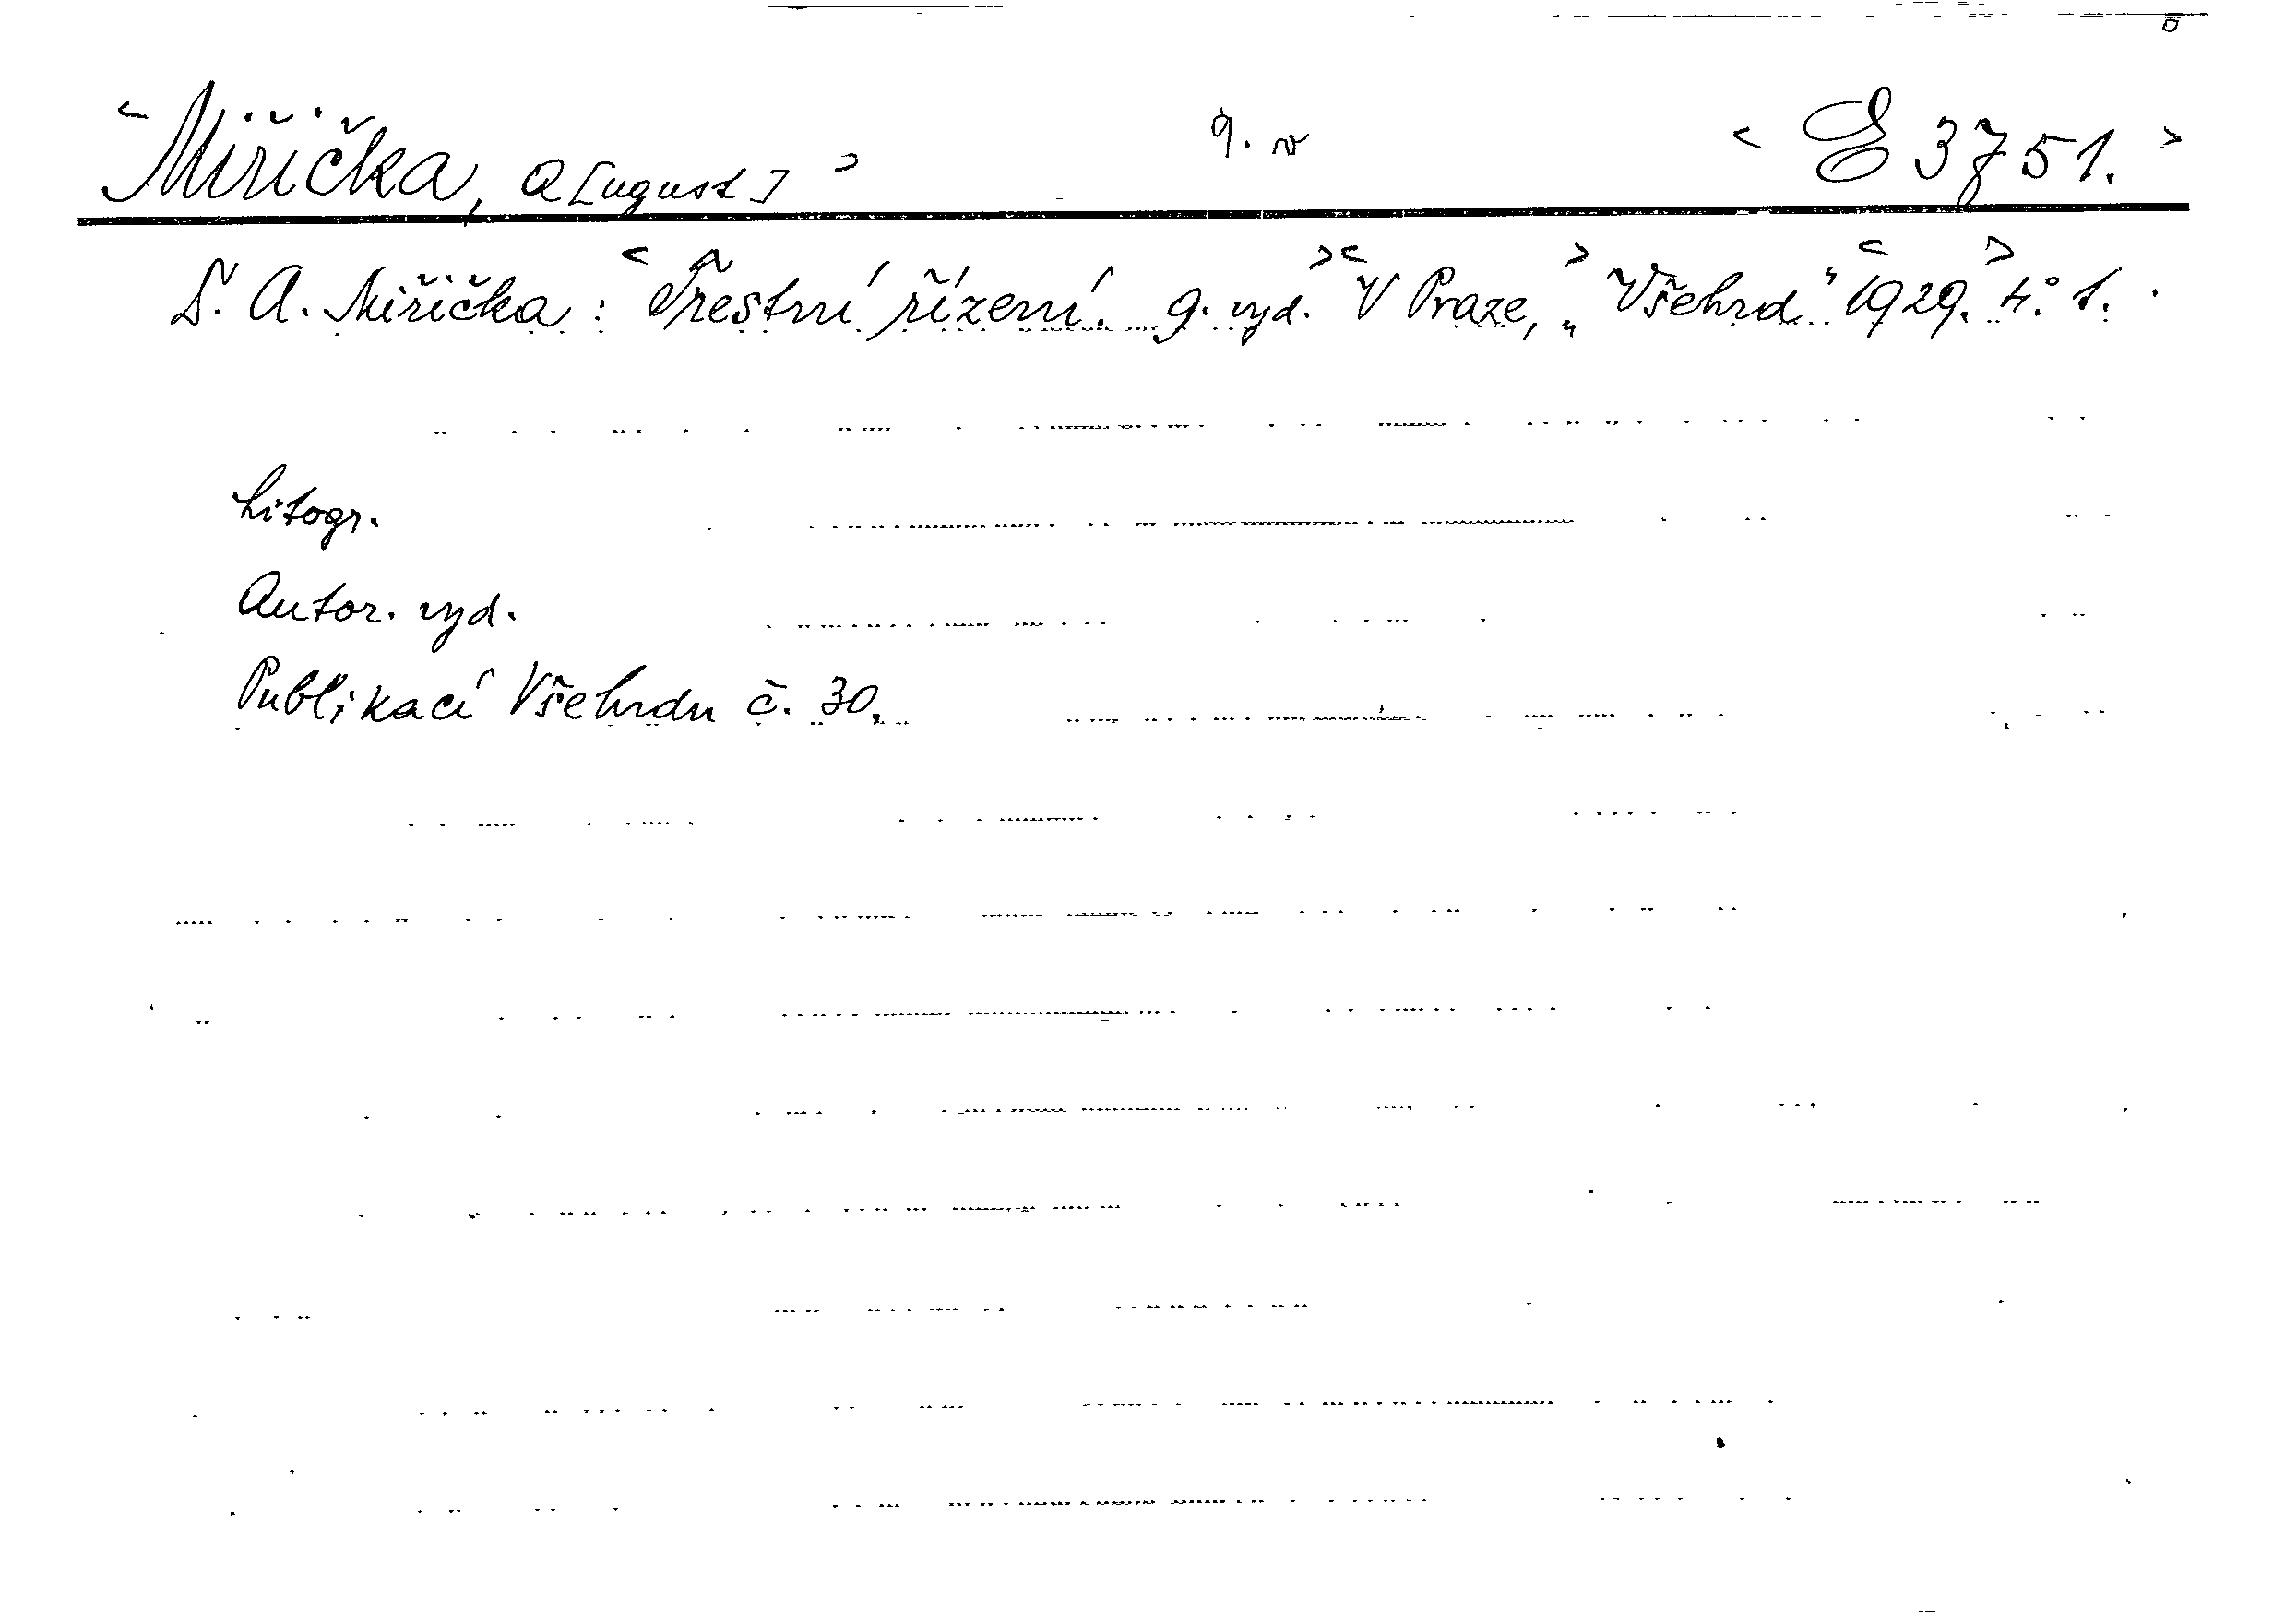 <Miřička, A[ugust]> 9. v <E 3751.>
D. A. Miřička: <Trestní řízení. 9. vyd.><V Praze,> „Všehrd" <1929.> 4°. 1.
Litogr.
Autor. vyd.
Publikací Všehrdu č. 30.